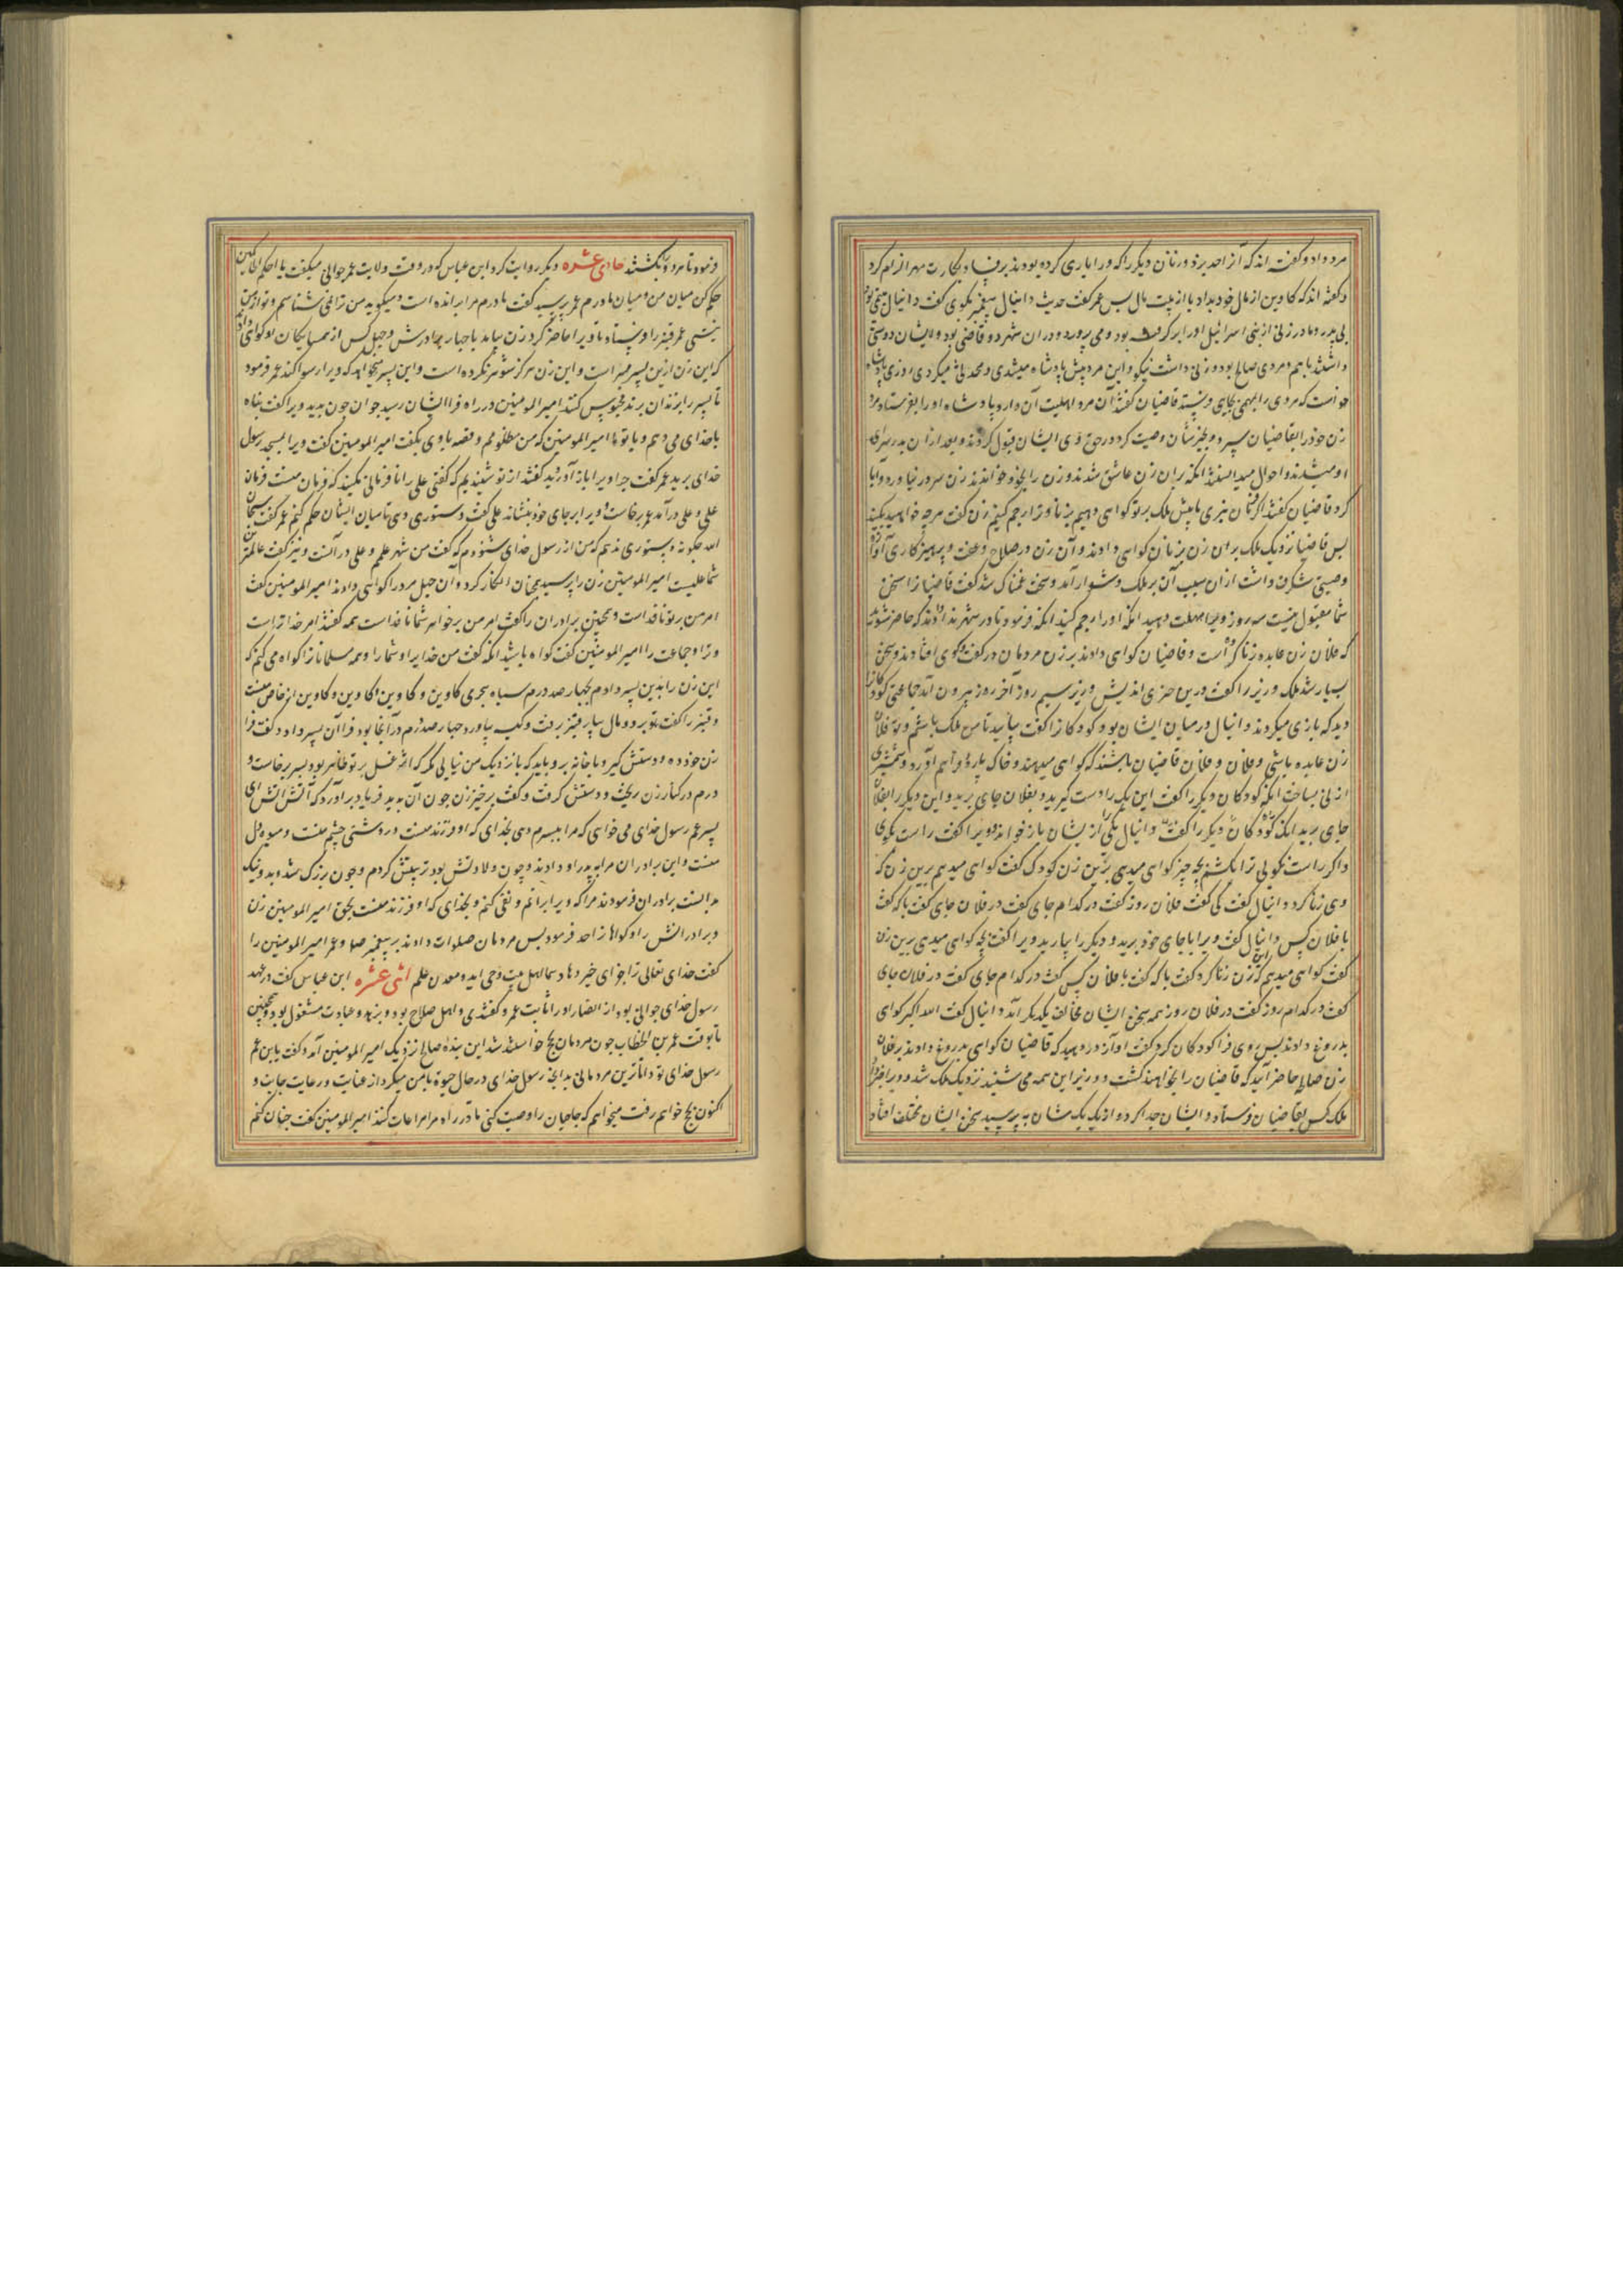 مرد داد و گفته اند که آنرا حد بزد و زنان دیگر را که ورا یاری کرده بودند
و گفته اند که کاوین از مال خود بداد یا از بیت مال بس عمر گفت حدیث دانیال پیغمبر بگوی گفت دانیال
بی پدر و مادر زنی از بنی اسرائیل اورا بر گرفته بود و می پرورد و در ان شهر دو قاضی بود و ایشان دوستی
داشتند با هم و مردی صالح بود و زنی داشت نیکو و این مرد پیش پادشاه میشدی و محدثی میکردی روزی پادشاه
خواست که مردی را بمهمی بجای فرستد قاضیان گفتند آن مرد اهلیت آن دارد پادشاه اورا بفرستاد مرد
زن خود را بقاضیان سپرد و بخیرشان وصیت کرد در حق وی ایشان قبول کردند و بعد ازان بدر سرای
او میشدند و احوال میدانستند انکه بران زن عاشق شدند و زن را بخود خواندند زن سر در نیاورد و ابا
کرد قاضیان گفتند اگر فرمان نبری ما پیش ملک بر تو گواهی دهیم بزنا و ترا رجم کنیم زن گفت هرچه خواهید بکنید
بس قاضیان نزدیک ملک بران زن بزنا گواهی دادند و آن زن در صلاح و عفت و پرهیزکاری آوازه
وصیتی شگرف داشت ازان سبب آن بر ملک دشوار آمد و سخت غمناک شد گفت قاضیانرا سخن
شما مقبول نیست سه روز ویرا مهلت دهید انکه اورا رجم کنید انکه فرمود تا در شهر ندا دادند که حاضر شوید
که فلان زن عابده زنا کرده است و قاضیان گواهی دادند بر زن مردمان در گفت و گوی افتادند و سخن
بسیار شد ملک وزیر را گفت درین چیزی اندیش وزیر سیم روز آخر روز بیرون آمد جماعتی کودکانرا
دید که بازی میکردند دانیال در میان ایشان بود کودکانرا گفت بیایید تا من ملک باشم و تو فلان
زن عابده باشی و فلان و فلان قاضیان باشند که گواهی میدهند و خاک پاره فراهم آورد و شمشیری
از نی بساخت انکه کودکان دیگر را گفت این یک را دست گیرید و بفلان جای برید و این دیگر را بفلان
جای برید انکه کودکان دیگر را گفت دانیال یکی را از یشان باز خواند و ویرا گفت راست بگوی
و اگر راست نگوئی ترا بکشم بچه چیز گواهی میدهی برین زن کودک گفت گواهی میدهم برین زن که
وی زنا کرد دانیال گفت کی گفت فلان روز گفت در کدام جای گفت در فلان جای گفت با که گفت
با فلان کس دانیال گفت ویرا باجای خود برید و دیگر را بیارید ویرا گفت بچه گواهی میدهی برین زن
گفت گواهی میدهم که این زن زنا کرد گفت با که گفت با فلان کس گفت در کدام جای گفت در فلان جای
گفت در کدام روز گفت در فلان روز همه سخن ایشان مخالف یکدیگر آمد دانیال گفت الله اکبر گواهی
بدروغ دادند بس روی فرا کودکان کرد گفت آواز در دهید که قاضیان گواهی بدروغ دادند بر فلان
زن صالح حاضر آیید که قاضیان را بخواهند کشت و وزیر این همه می شنید نزدیک ملک شد و ویرا خبر داد
ملک کس بقاضیان فرستاد و ایشان جدا کرد و از یک یک شان به پرسید سخن ایشان مختلف افتاد
فرمود تا هر دو را بکشتند حادی عشره دیگر روایت کرد ابن عباس که در وقت ولایت عمر جوانی میگفت یا احکم الحاکمین
حکم کن میان من و میان مادرم عمر پرسید گفت مادرم مرا برانده است و میگوید من ترا نمی شناسم و تو از من
نیستی عمر قنبر را فرستاد تا ویرا حاضر کرد زن بیامد با چهار برادرش و چهل کس از همسایگان بگواهی
که این زن ازین پسر مبرا است و این زن هرگز شوهر نکرده است و این پسر میخواهد که ویرا رسوا کند عمر فرمود
تا پسر را بزندان برند محبوس کنند امیر المومنین در راه فرا ایشان رسید جوان چون بدید ویرا گفت پناه
باخدای می دهم و با تو یا امیر المومنین که من مظلومم و قصه با وی بگفت امیر المومنین گفت ویرا بمسجد رسول
خدای برید عمر گفت چرا ویرا باز آوردید گفتند از تو شنیدیم که گفتی علی را نافرمانی مکنید که فرمان منست فرمان
علی و علی درآمد عمر برخاست و ویرا بر جای خود بنشاند علی گفت دستوری دهی تا میان ایشان حکم کنم عمر گفت سبحان
الله چگونه دستوری ندهم که من از رسول خدای شنودم که گفت من شهر علمم و علی در آنست و نیز گفت عالمترین
شما علیست امیر المومنین زن را پرسید همچنان انکار کرد و آن چهل مرد را گواهی دادند امیر المومنین گفت
امر من بر تو نافذ است و همچنین برادران را گفت امر من بر خواهر شما نافذ است همه گفتند امر خدا تراست
و ترا و جماعت را امیر المومنین گفت گواه باشید انکه گفت من خدایرا و شما را و همه مسلمانانرا گواه می کنم که
این زن را بدین پسر دادم بچهار صد درم سیاه هجری کاوین و کاوین و کاوین از خاص منست
و قنبر را گفت برو و مال بیار قنبر برفت و کیسه بیاورد چهار صد درم در آنجا بود فرا آن پسر داد و گفت فرا
زن خود ده و دستش گیر و باخانه برو باید که با نزدیک من نیایی مگر که اثر غسل بر تو ظاهر بود پسر برخاست و
درم در کنار زن ریخت و دستش گرفت و گفت برخیز زن چون آن بدید فریاد برآورد که آتش آتش ای
پسر عم رسول خدای می خواهی که مرا بپسرم دهی بخدای که او فرزند منست و روشنی چشم منست و میوه دل
منست و این برادران مرا به پدر او دادند و چون ولادتش بود تربیتش کردم و چون بزرگ شد و بد و نیک
بدانست برادران فرمودند مرا که ویرا برانم و نفی کنم و بخدای که او فرزند منست بحق امیر المومنین زن
و برادرانش را و گواهانرا حد فرمود بس مردمان صلوات دادند بر پیغمبر صلم و عمر امیر المومنین را
گفت خدای تعالی ترا جزای خیر دهاد شما اهل بیت وحی اید و معدن علم اثنی عشره ابن عباس گفت در عهد
رسول خدای جوانی بود از انصار اورا ثابت عمرو گفتندی و اهل صلاح بود و بزهد و عبادت مشغول بود و همچنین
تا بوقت عمر بن الخطاب چون مردمان بحج خواستند شد این بنده صالح نزدیک امیر المومنین آمد و گفت یا بن عم
رسول خدای تو داناترین مردمانی بدانچه رسول خدای در حال حیوة با من میکرد از عنایت و رعایت جانب و
اکنون بحج خواهم رفت میخواهم که حاجیان را وصیت کنی تا در راه مرا مراعات کنند امیر المومنین گفت چنان کنم